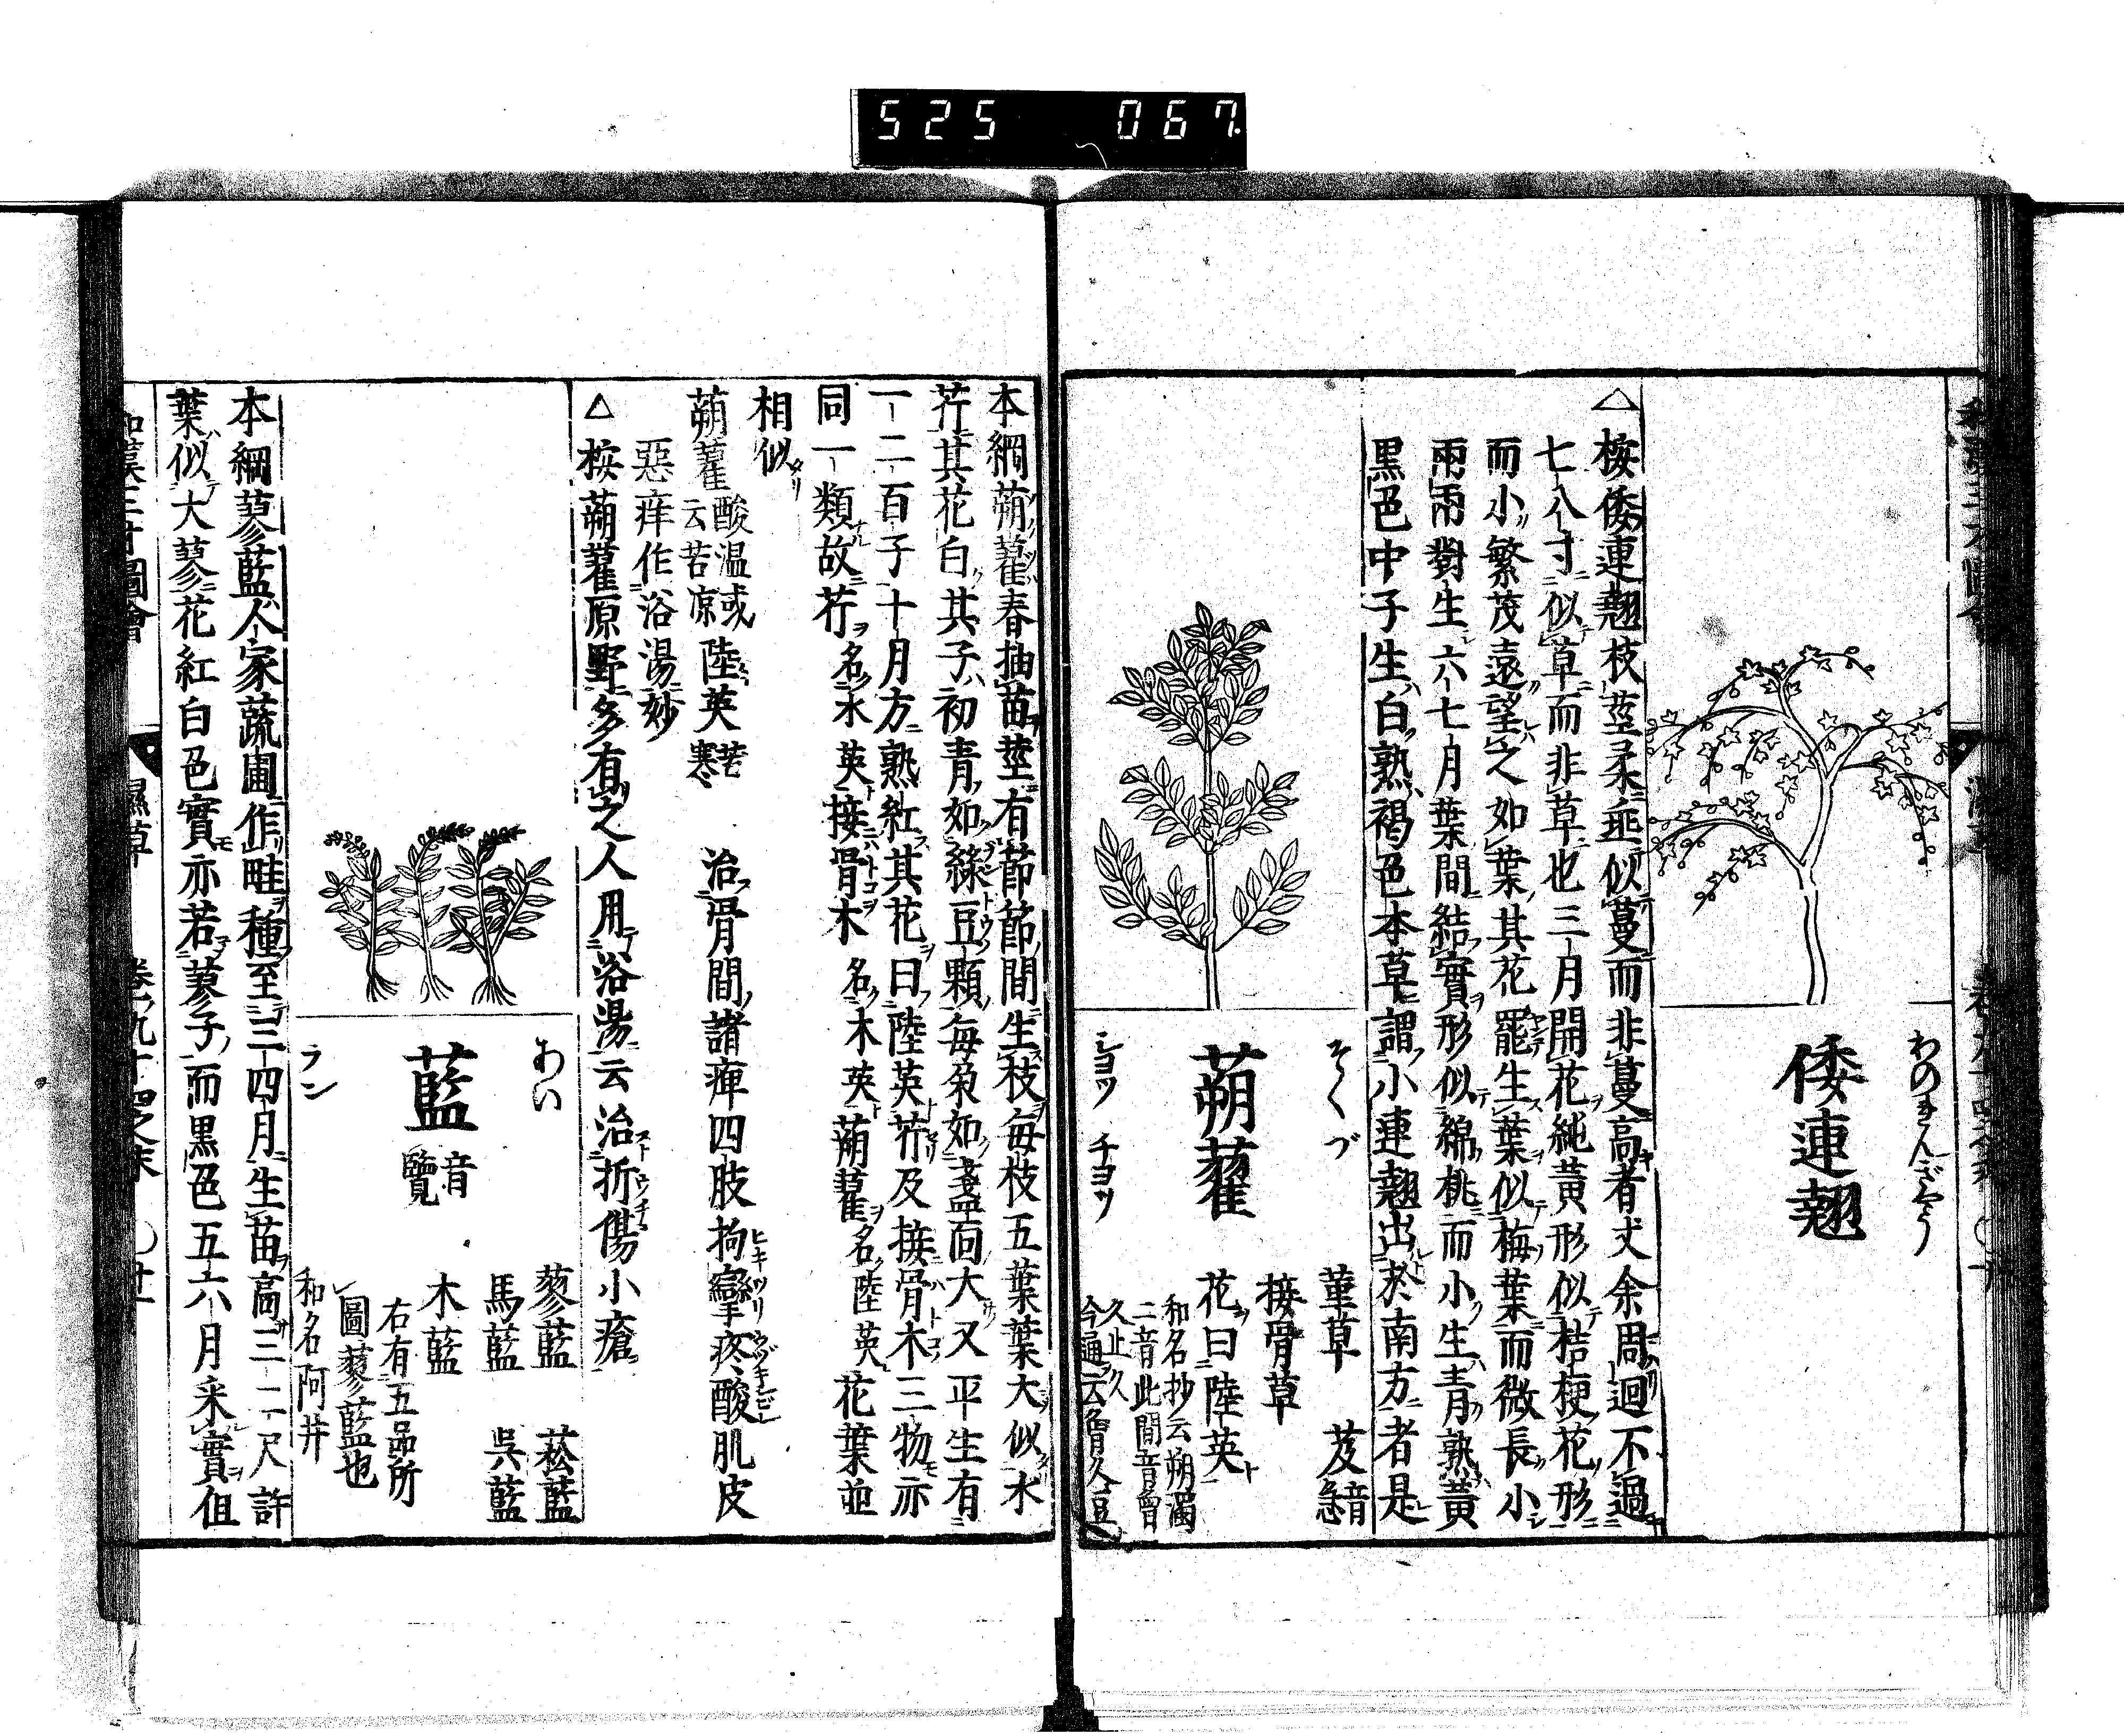 525 067
わのれんぎやう
倭連翹
△按倭連翹枝莖柔埀似蔓而非蔓高者丈余周迴不過
七八寸似草而非草也三月開花純黃形似桔梗花形
而小繁茂遠望之如葉其花罷生葉似梅葉而微長小
兩兩對生六七月葉間結實形似綿桃而小生青熟黃
黒色中子生白熟褐色本草謂小連翹出於南方者是
そくづ
蒴藋
シヨツ チヨツ
菫草 芨音急
接骨草
花曰陸英
和名抄云蒴濁
二音此間音曾
久止久
本綱蒴藋春抽苗莖有節節間生枝每枝五葉葉大似水
芹其花白其子初青如綠豆顆每朶如盞面大又平生有
一二百子十月方熟紅其花曰陸英芹及接骨木三物亦
同一類故芹名水英接骨木名木英蒴藋名陸英花葉並
相似
蒴藋酸温或云苦凉 陸英苦寒 治骨間諸痺四肢拘攣疼酸肌皮
惡痒作浴湯妙
△按蒴藋原野多有之人用浴湯云治折傷小瘡
あい
藍音覽
ラン
蓼藍 菘藍
馬藍 呉藍
木藍
右有五品所
圖蓼藍也
和名阿井
本綱蓼藍人家蔬圃作畦種至三四月生苗高三二尺許
葉似大蓼花紅白色實亦若蓼子而黒色五六月采實但
和漢三才圖會 濕草 卷九十四之末 〇廿一